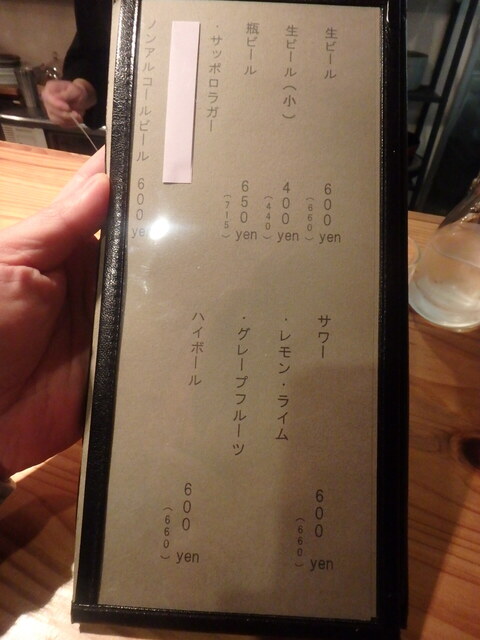 生ビール 600yen (660)
生ビール(小) 400yen (440)
瓶ビール 650yen (715)
・サッポロラガー
ノンアルコールビール 600ye
サワー 600yen (660)
・レモン・ライム
・グレープフルーツ
ハイボール 600yen (660)